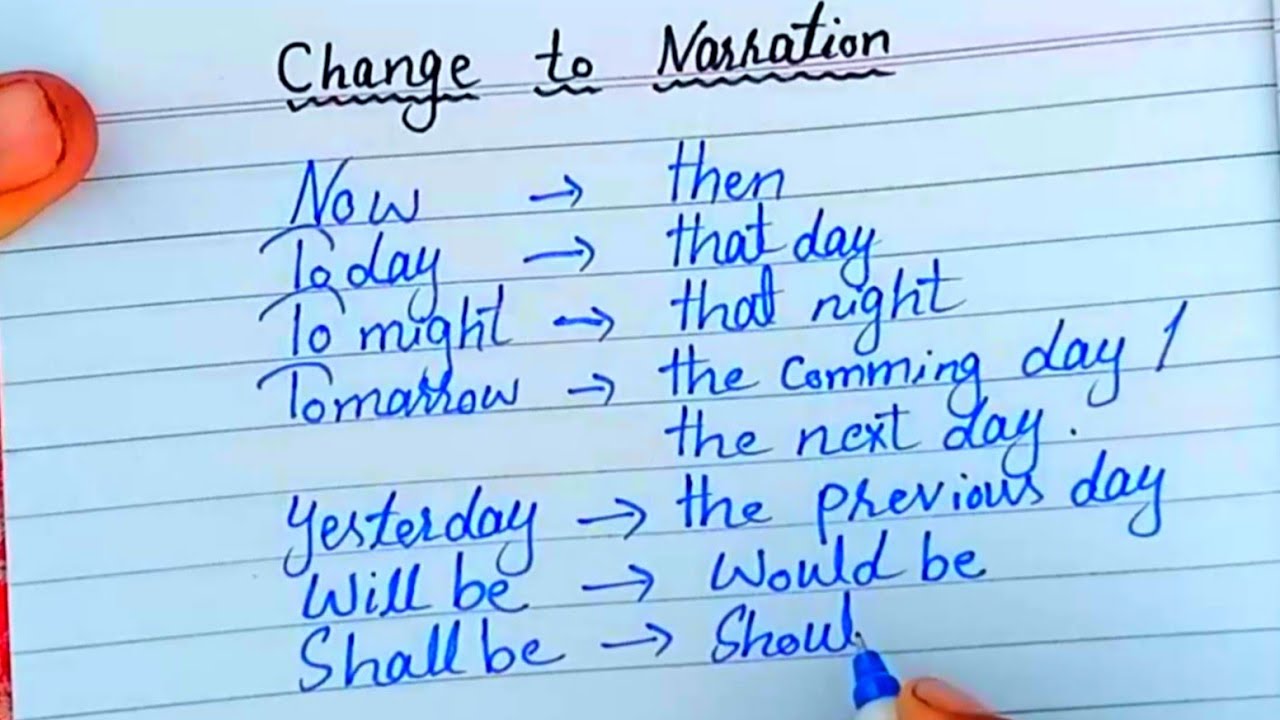 Change to Narration
Now → then
Today → that day
To might → that night
Tomorrow → the comming day /
the next day.
Yesterday → the previous day
Will be → Would be
Shall be → Shoul